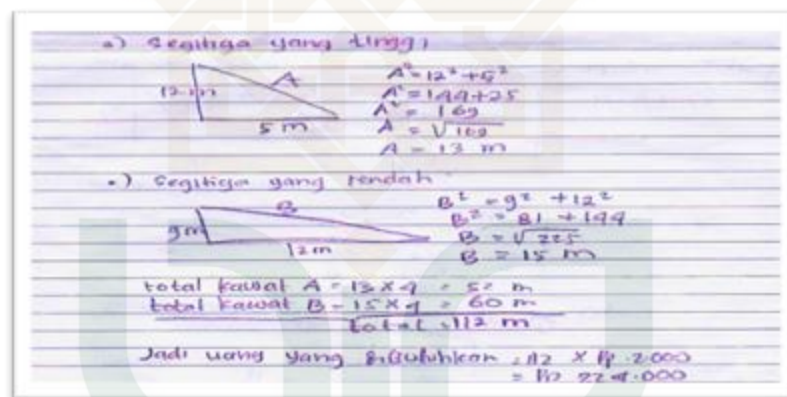 •) Segitiga yang tinggi
A² = 12² + 5²
12 m
A
A² = 144 + 25
A² = 169
5 m
A = √169
A = 13 m
•) Segitiga yang rendah
B² = 9² + 12²
B
B² = 81 + 144
9 m
B = √225
12 m
B = 15 m
total kawat A = 13 x 4 = 52 m
total kawat B = 15 x 4 = 60 m
total = 112 m
Jadi uang yang dibutuhkan = 112 x Rp. 2.000
= Rp 224.000